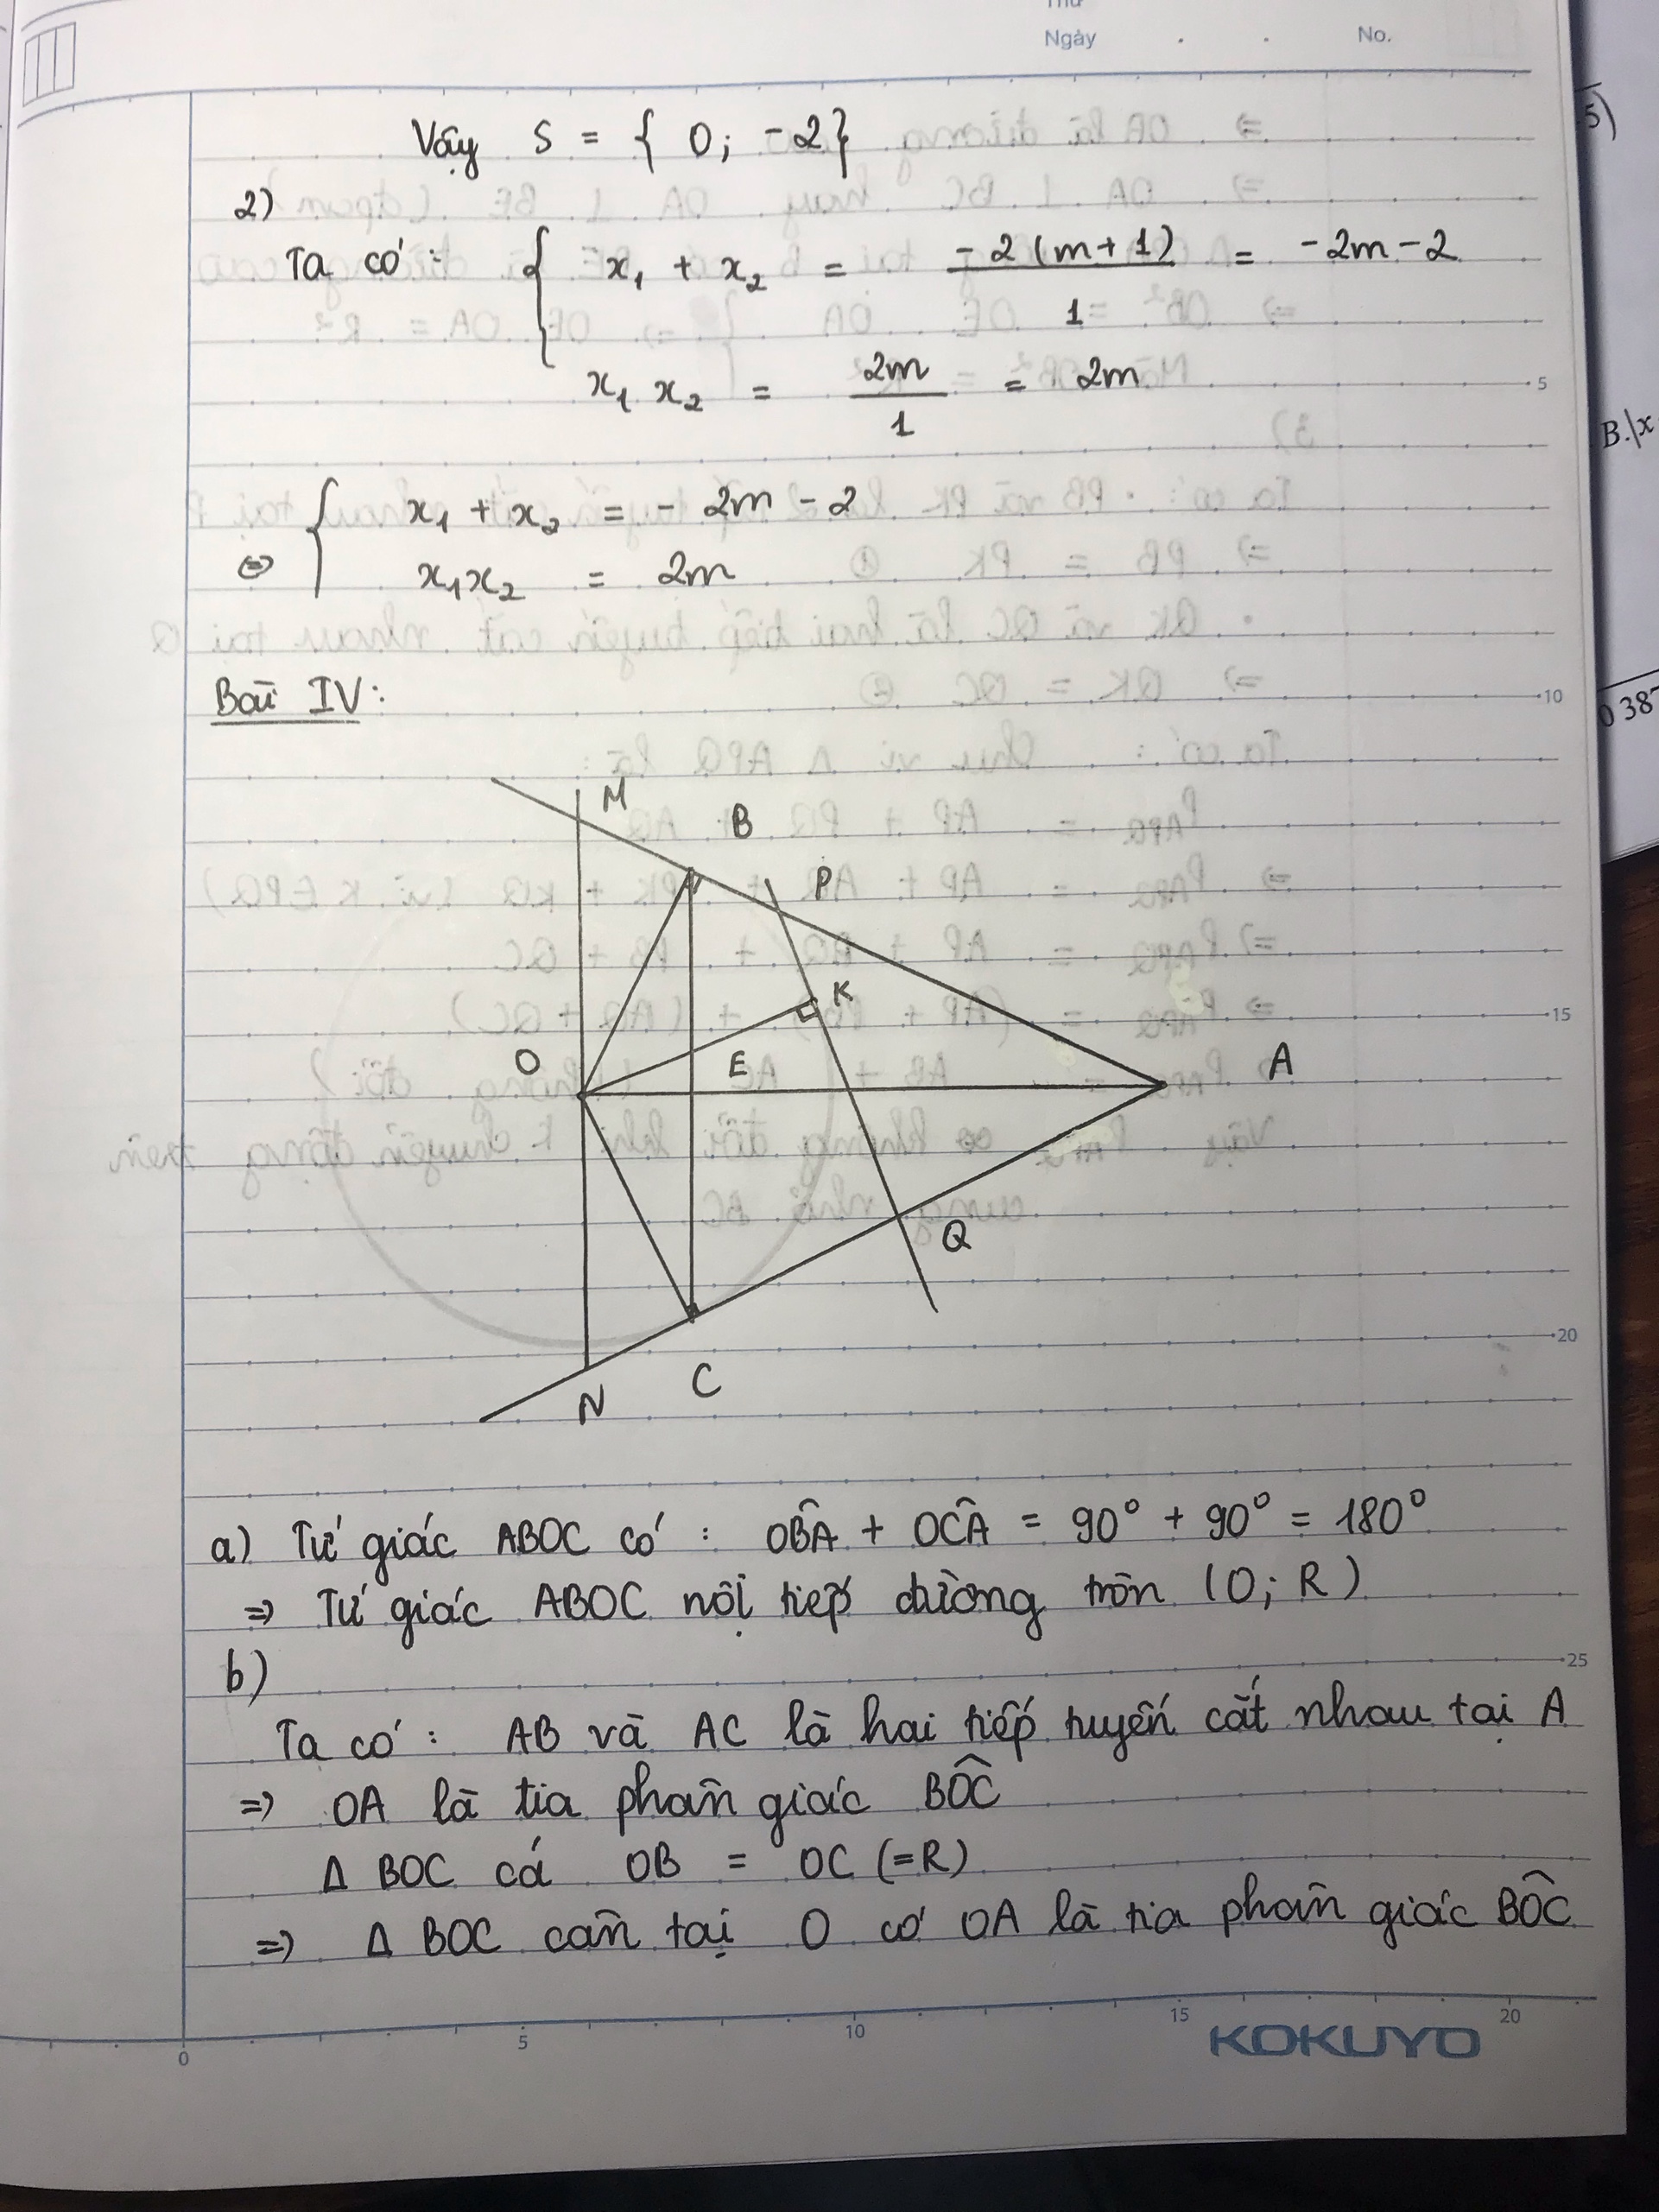 Thứ
Ngày . . No.
Vậy S = { 0; -2}
2)
Ta có: { x₁ + x₂ = -2(m+1)/1 = -2m-2
x₁ x₂ = 2m/1 = 2m
5
⇔ { x₁ + x₂ = - 2m - 2
x₁x₂ = 2m
Bài IV:
10
M
B
P
K
15
O
E
A
Q
20
C
N
a) Tứ giác ABOC có : OB̂A + OĈA = 90° + 90° = 180°
=> Tứ giác ABOC nội tiếp đường tròn (O; R)
b)
25
Ta có : AB và AC là hai tiếp tuyến cắt nhau tại A
=> OA là tia phân giác BÔC
Δ BOC có OB = OC (=R)
=> Δ BOC cân tại O có OA là tia phân giác BÔC
0 5 10 15 20
KOKUYO
5)
B.|x
0 387